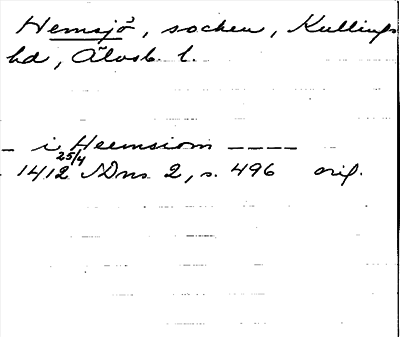 Hemsjö, socken, Kullings
hd, Älvsb. l.
— i Heemsiom — — — —
1412 25/4 SDns 2, s. 496 orig.